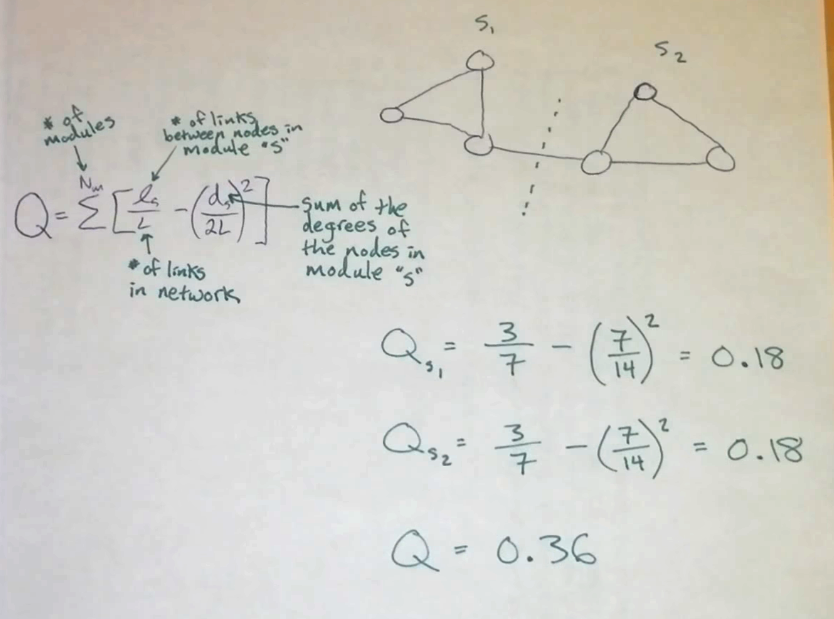 S₁
S₂
# of
modules
# of links
between nodes in
module "s"
Q = Σ^Nₘ [lₛ/L - (dₛ/2L)²]
sum of the
degrees of
the nodes in
module "s"
# of links
in network
Qₛ₁ = 3/7 - (7/14)² = 0.18
Qₛ₂ = 3/7 - (7/14)² = 0.18
Q = 0.36